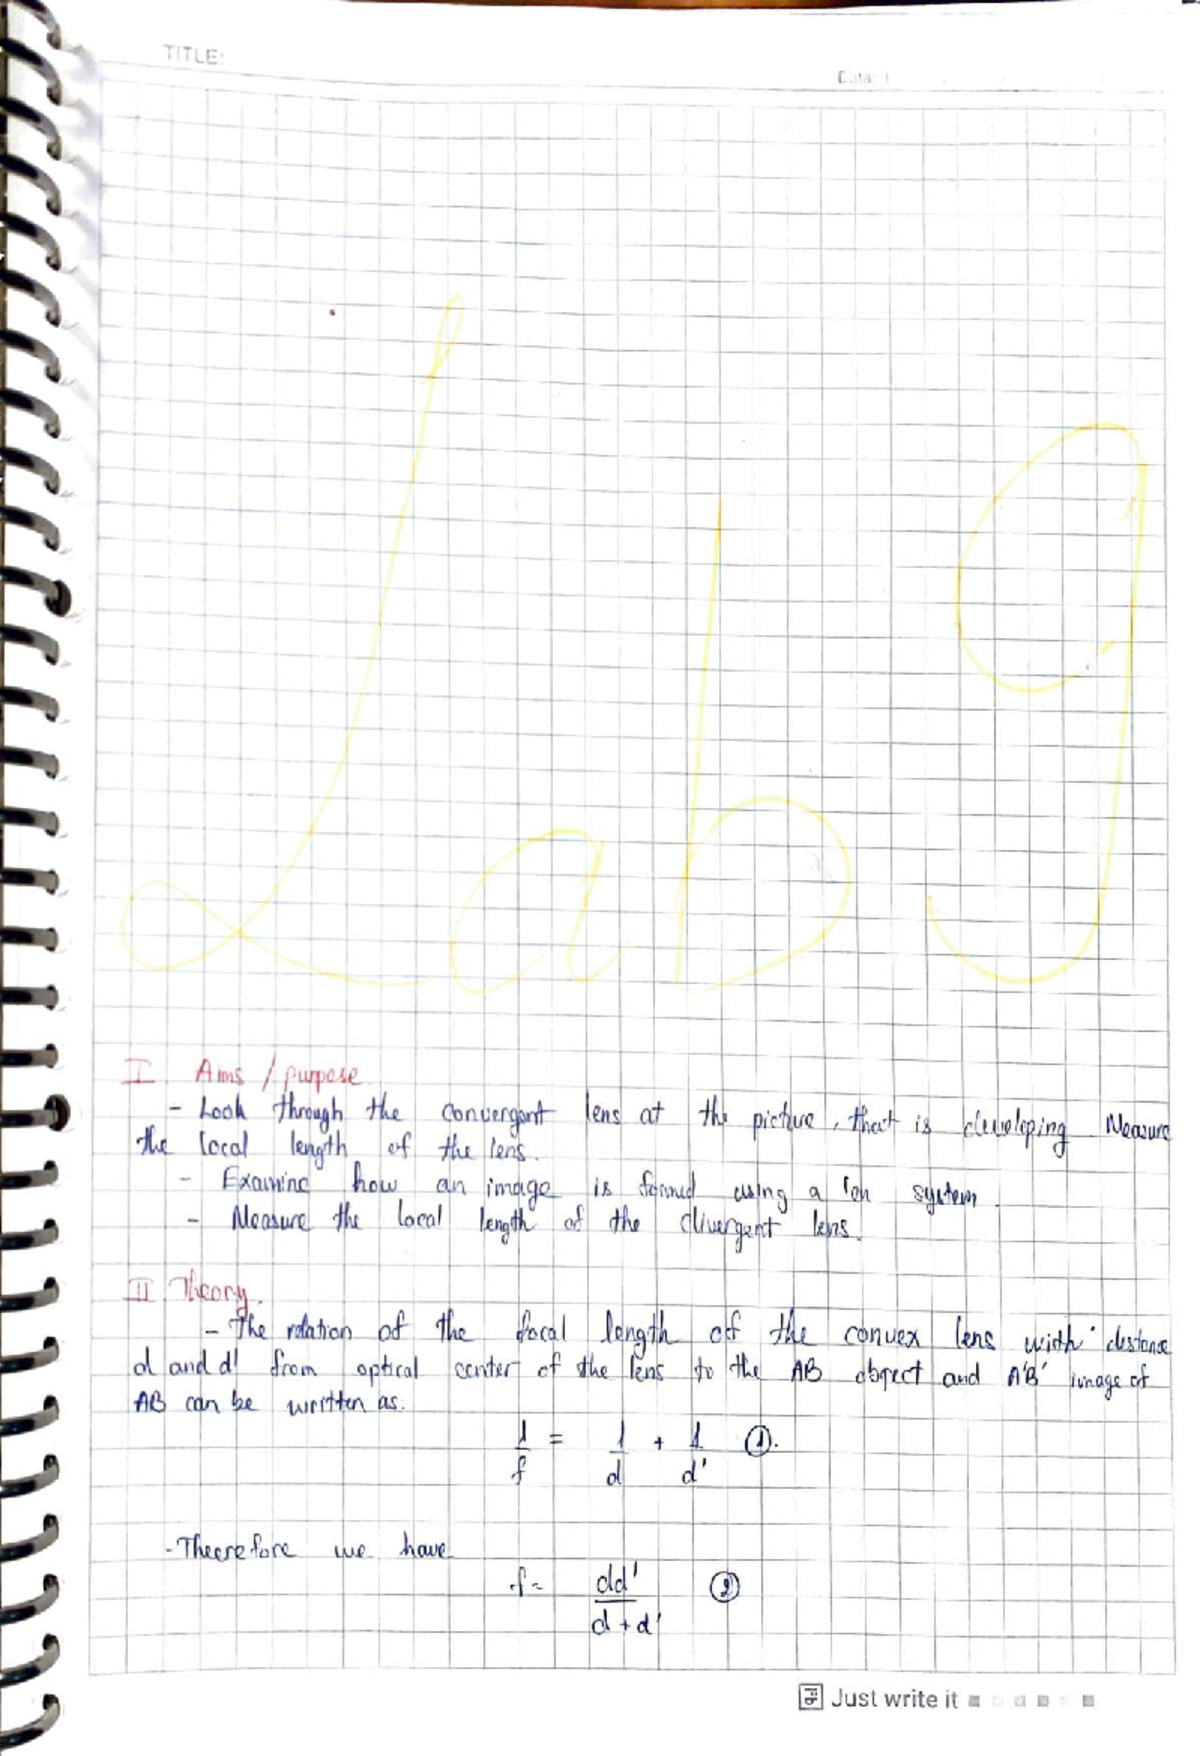 TITLE:
Data:
Lab 9
I Aims / purpose
- Look through the convergent lens at the picture, that is developing Measure
the local length of the lens.
- Examine how an image is formed using a len system.
- Measure the local length of the divergent lens.
II. Theory.
- The relation of the focal length of the convex lens with distance
d and d' from optical center of the lens to the AB object and A'B' image of
AB can be written as.
1/f = 1/d + 1/d' ①.
- Therefore we have
f = dd'/d + d' ②
Just write it